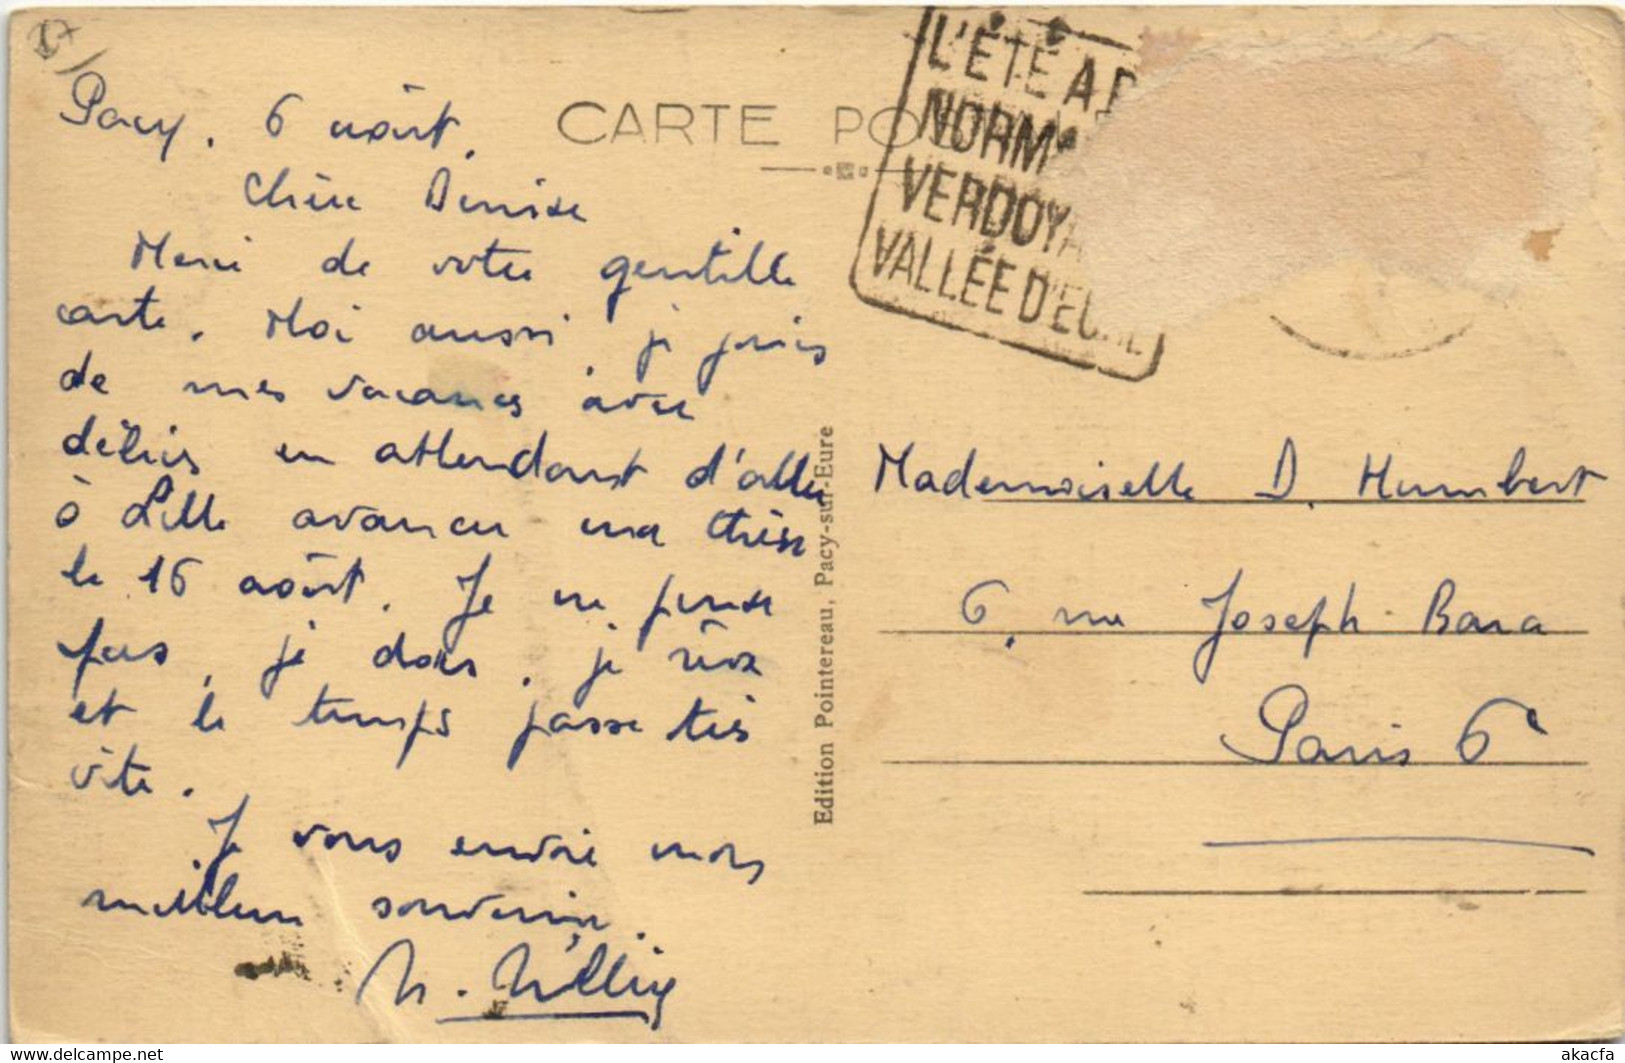 Pacy, 6 août.
Chère Denise
Merci de votre gentille
carte. Moi aussi je jouis
de mes vacances avec
délices en attendant d'aller
à Lille avancer ma thèse
le 16 août. Je ne pense
pas, je dors, je rêve
et le temps passe très
vite.
Je vous envoie mon
meilleur souvenir.
CARTE POSTALE
L'ÉTÉ A P
NORM
VERDOYA
VALLÉE D'EURE
Edition Pointereau, Pacy-sur-Eure
Mademoiselle D. Humbert
6, rue Joseph-Bara
Paris 6e
www.delcampe.net
akacfa